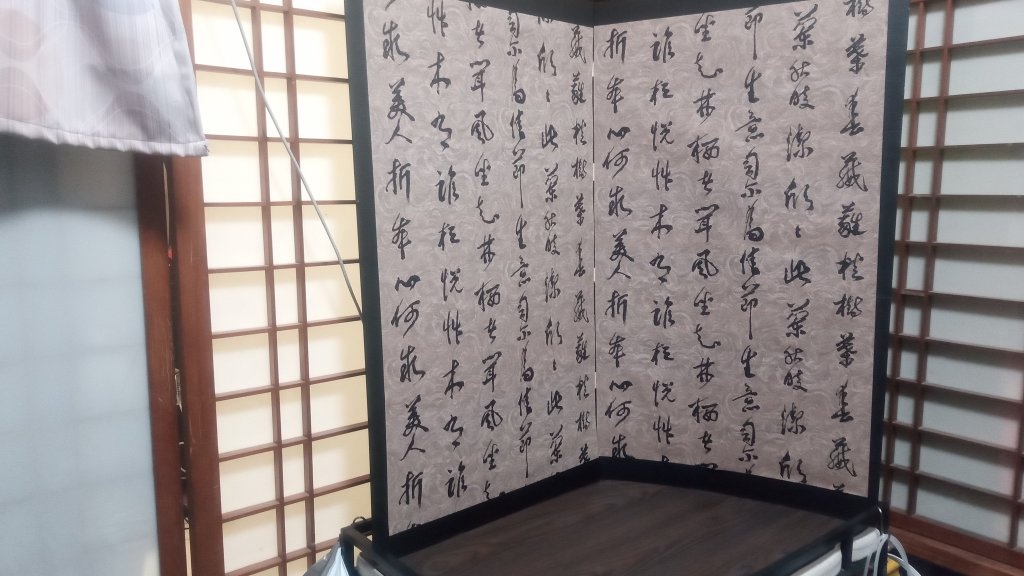 蘭華春葳蕤桂蘭華春葳
葉秋皎潔欣々此葉秋皎潔欣
節生意自爾為佳節生意自爾為
坐知林棲者聞風坐知林棲者聞
誰相悅草木有誰相悅草
折本心何求美人折本心何求
葳蕤桂蘭華春葳蕤桂蘭華
欣々此葉秋皎潔欣々此葉
爾為佳節生意自爾為佳節
者聞風坐知林棲者聞風坐知
草木有誰相悅草木有誰
求美人折本心何求美人折